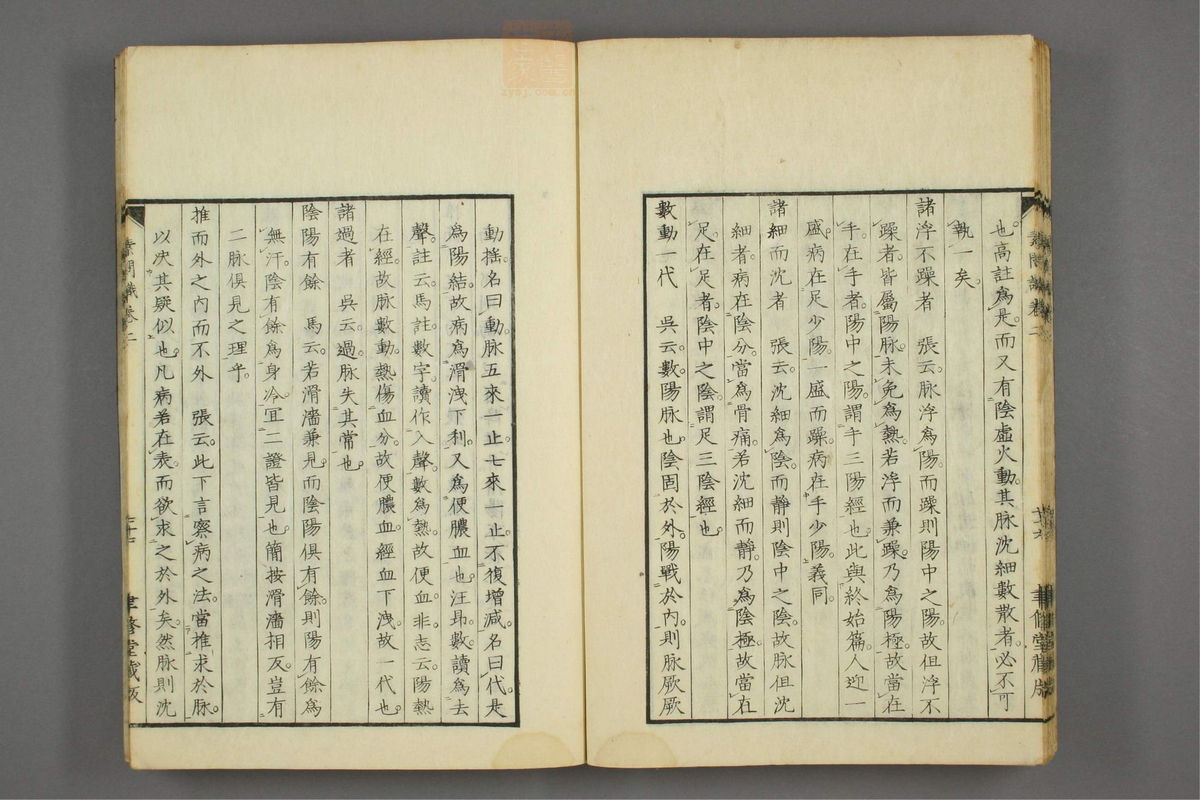 也。高註爲是。而又有陰虛火動。其脈沈細數散者。必不可
執一矣。
諸浮不躁者　張云。脈浮爲陽。而躁則陽中之陽。故但浮不
躁者。皆屬陽脈。未免爲熱。若浮而兼躁。乃爲陽極。故當在
手。在手者。陽中之陽。謂手三陽經也。此與終始篇。人迎一
盛。病在足少陽。一盛而躁。病在手少陽。義同。
諸細而沈者　張云。沈細爲陰。而靜則陰中之陰。故脈但沈
細者。病在陰分。當爲骨痛。若沈細而靜。乃爲陰極。故當在
足。在足者。陰中之陰。謂足三陰經也。
數動一代　吳云。數。陽脈也。陰固於外。陽戰於內。則脈厥厥
動搖。名曰動。脈五來一止。七來一止。不復增減。名曰代。是
爲陽結。故病爲滑洩下利。又爲便膿血也。汪昻。數讀爲去
聲。註云。馬註數字。讀作入聲。數爲熱。故便血。非。志云。陽熱
在經。故脈數動。熱傷血分。故便膿血。經血下洩。故一代也。
諸過者　吳云。過。脈失其常也。
陰陽有餘　馬云。若滑濇兼見。而陰陽俱有餘。則陽有餘爲
無汗。陰有餘爲身冷。宜二證皆見也。簡按滑濇相反。豈有
二脈俱見之理乎。
推而外之內而不外　張云。此下言察病之法。當推求於脈。
以决其疑似也。凡病若在表。而欲求之於外矣。然脈則沈
素問識卷二
聿修堂藏版